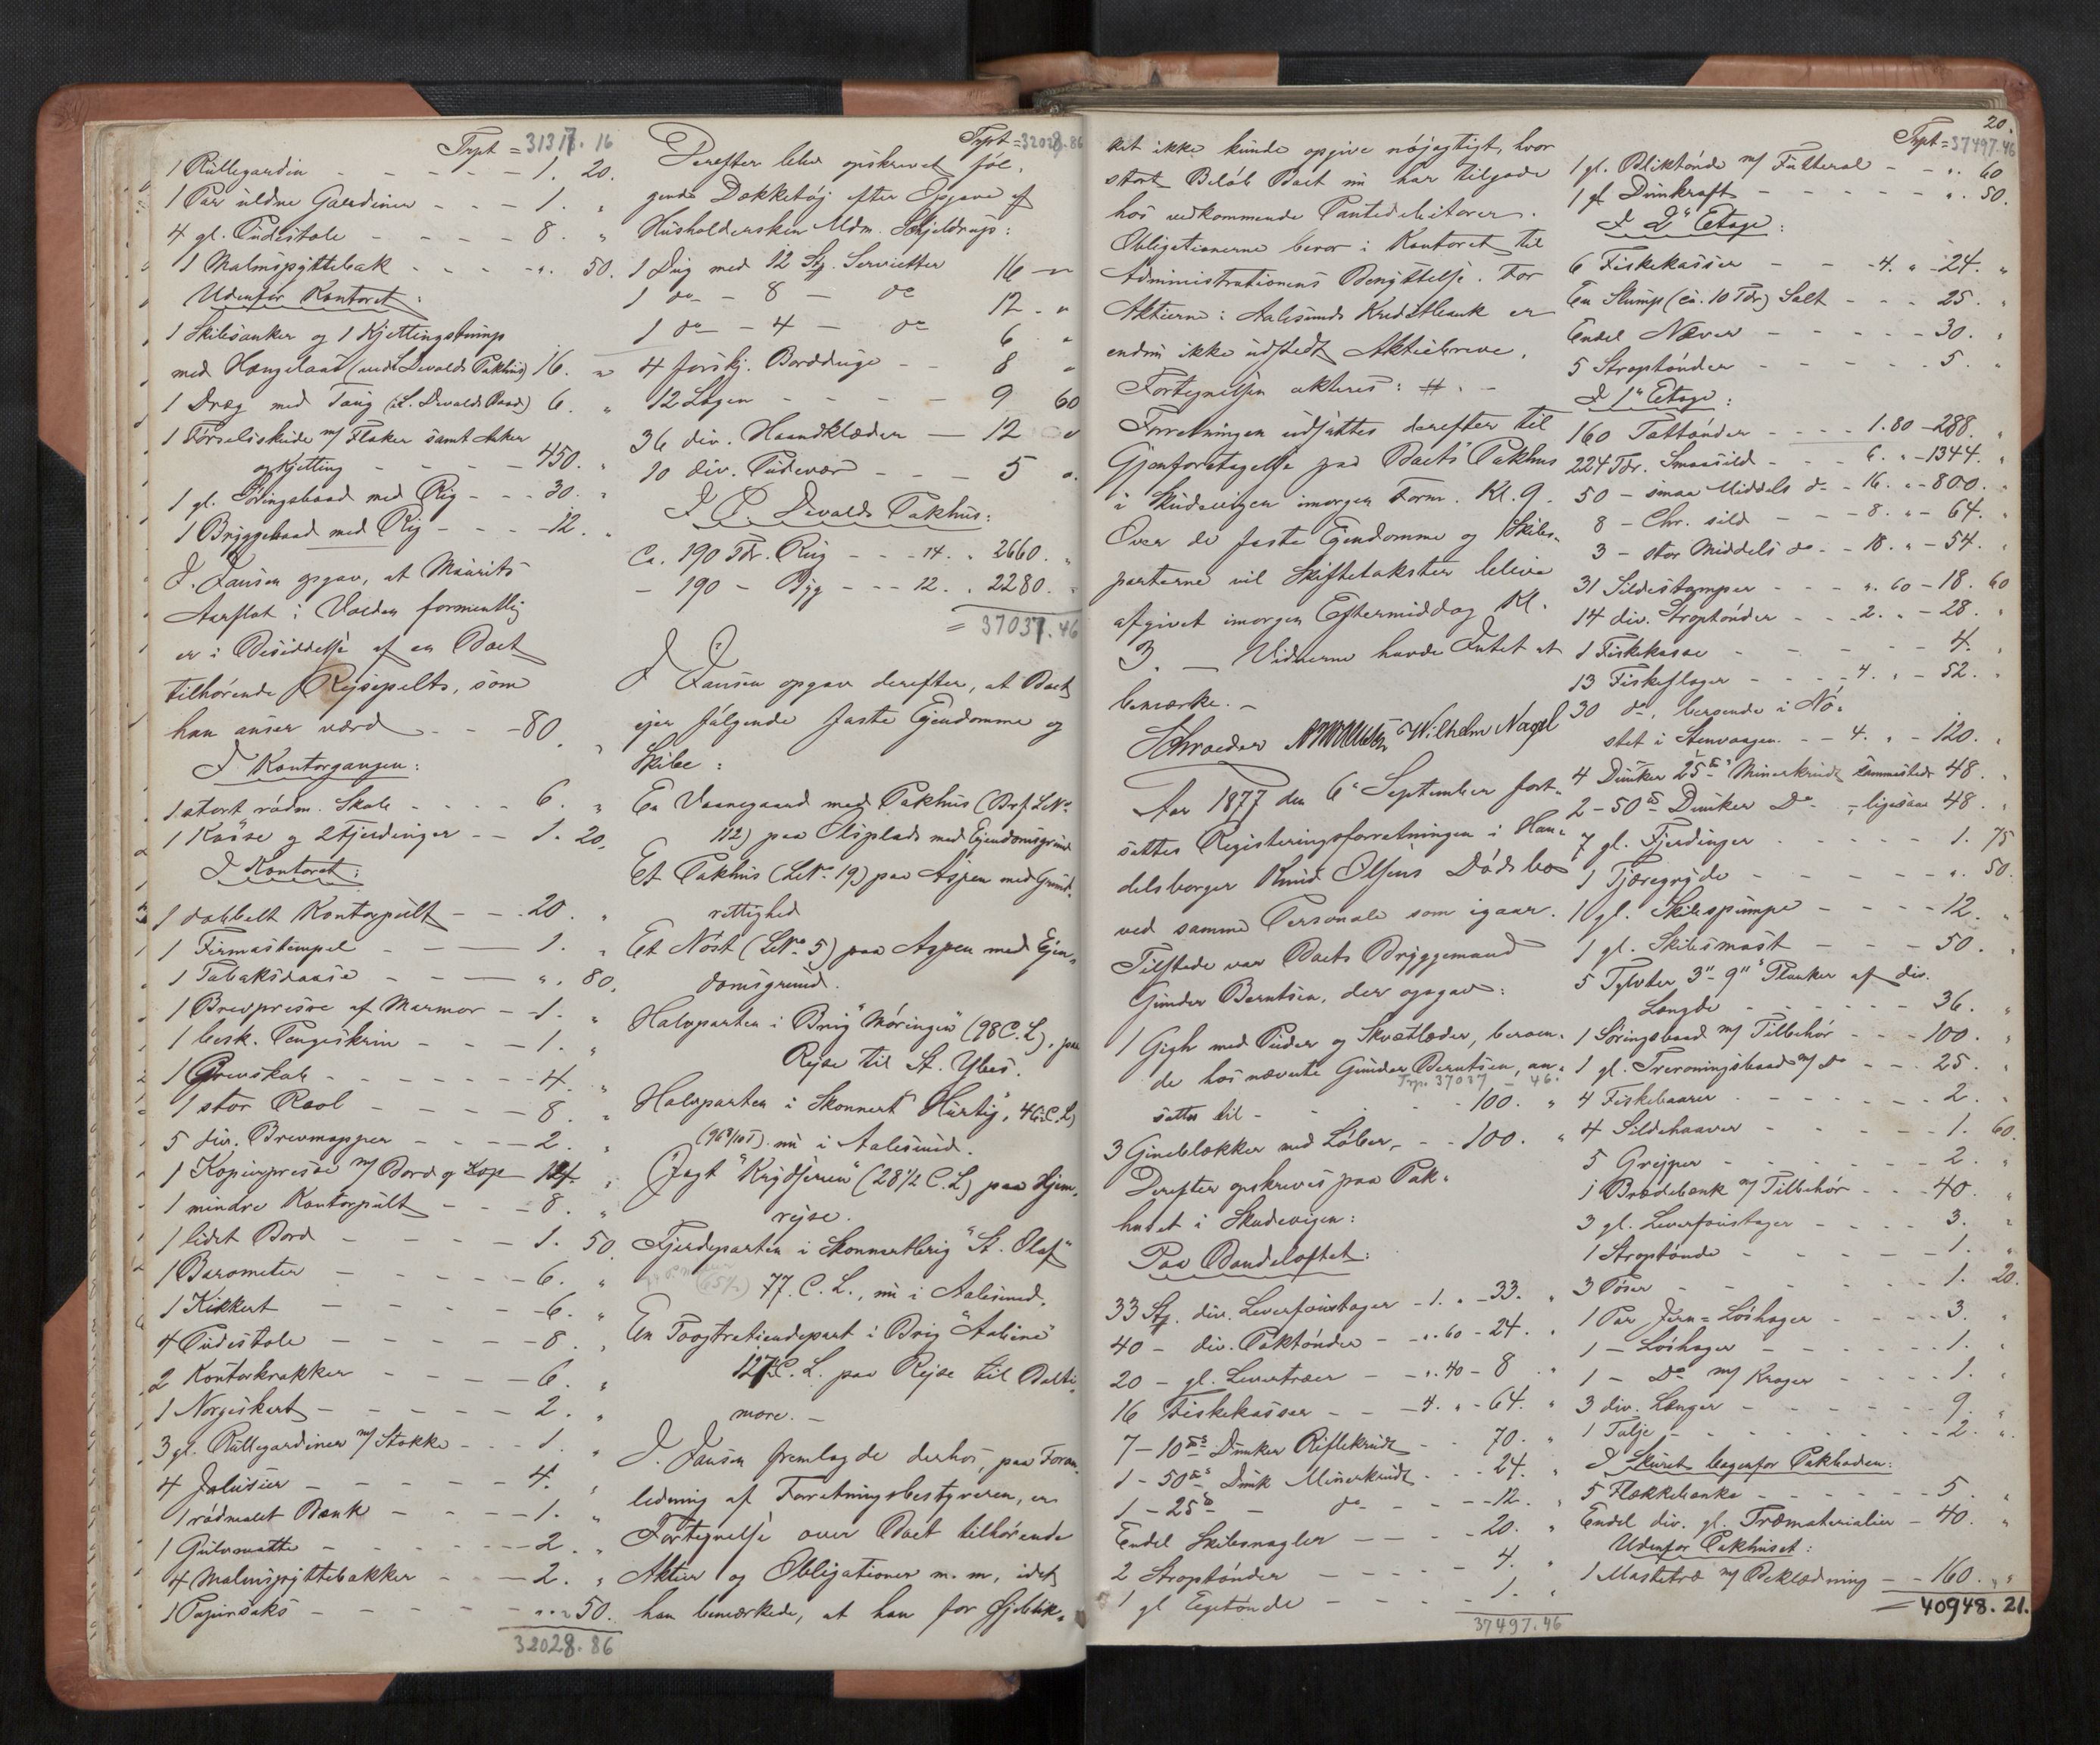 Trpt = 31317. 16
1 Rullegardin - - - - - 1. 20.
1 Par uldne Gardiner - - - 1. "
4 gl. Pudestole - - - - 8. "
1 Malmspyttebak - - - - ". 50.
Udenfor Kontoret:
1 Skibsanker og 1 Kjettingstump
med Hængelaas (ved L. Devolds Pakhus) 16. "
1 Dræg med Toug (i L. Devolds Baad) 6. "
1 Førselsskude m/ Flaker samt Anker
og Kjetting - - - - 450. "
1 gl. Søringsbaad med Rig - - - 30. "
1 Bryggebaad med Rig - - - - 12. "
J. Jansen opgav, at Maurits
Aarflot i Volden formentlig
er i Besiddelse af en Boet
tilhørende Rejsepelts, som
han anser værd - - 80. "
I Kontorgangen:
1 stort rødm. Skab - - - - 6. "
1 Kasse og 2 Fjerdinger - - 1. 20.
I Kontoret:
1 dobbelt Kontorpult - - 20. "
1 Firmastempel - - - 1. "
1 Tobaksdaase - - - ". 80.
1 Brevpresse af Marmor - - 1. "
1 besk. Pengeskrin - - - 1. "
1 Brevskab - - - - - 4. "
1 stor Reol - - - - - 8. "
5 div. Brevmapper - - - - 2. "
1 Kopierpresse m/ Bord og Kop 14. "
1 mindre Kontorpult - - - 8. "
1 lidet Bord - - - - - 1. 50.
1 Barometer - - - - - 6. "
1 Kikkert - - - - - 6. "
4 Pudestole - - - - - 8. "
2 Kontorkrakker - - - - 6. "
1 Norgeskart - - - - - 2. "
3 gl. Rullegardiner m/ Stokke - - - 1. "
4 Jalusier - - - - - 4. "
1 rødmalet Bænk - - - - 1. "
1 Gulvmatte - - - - - 2. "
4 Malmspyttebakker - - - 2. "
1 Papirsaks - - - - - " 50.
32028. 86
Trpt = 32028. 86
Derefter blev opskrevet føl-
gende Dækketøj efter Opgave af
Husholdersken Mdm. Skjeldrup:
1 Dug med 12 Stk. Servietter 16 - "
1 do - 8 - do 12 - "
1 do - 4 - do 6 "
4 forskj. Bordduge - - 8 "
12 Lagen - - - - 9 60
36 div. Haandklæder - 12 "
10 div. Pudevar - - - 5 ".
I P. Devolds Pakhus:
Ca. 190 Tdr. Rug - - - 14. " 2660. "
- 190 - Byg - - - 12. " 2280. "
= 37037. 46
J. Jansen opgav derefter, at Boet
ejer følgende faste Ejendomme og
Skibe:
En Vaanegaard med Pakhus (Brf. Lno
112) paa Olsplads med Ejendomsgrund
Et Pakhus (Lno 19) paa Aspen med Grund-
rettighed
Et Nøst (Lno 5) paa Aspen med Ejen-
domsgrund.
Halvparten i Brig "Møringen" (98 C. L), paa
Rejse til St. Ybes.
Halvparten i Skonnert "Hurtig", 46 C. L)
nu i Aalesund.
Jagt "Krydseren" (28 1/2 C. L) paa Hjem-
rejse.
Fjerdeparten i Skonnertbrig "St. Olaf"
77. C. L., nu i Aalesund.
En Toogtretiendepart i Brig "Aaline"
127 C. L. paa Rejse til Balti-
more. -
J. Jansen fremlagde derhos, paa Foran-
ledning af Forretningsbestyreren, en
Fortegnelse over Boet tilhørende
Aktier og Obligationer m. m, idet
han bemærkede, at han for Øjeblik-
ket ikke kunde opgive nøjagtigt, hvor
stort Beløb Boet nu har tilgode
hos vedkommende Pantedebitorer.
Obligationerne beror i Kontoret til
Administrationens Benyttelse. For
Aktierne i Aalesunds Kreditbank er
endnu ikke udstedt Aktiebreve.
Fortegnelsen akteres: #. -
Forretningen udsattes derefter til
Gjenforetagelse paa Boets Pakhus
i Skudevigen imorgen Form. Kl. 9.
Over de faste Ejendomme og Skibs-
parterne vil Skiftetakster blive
afgivet imorgen Eftermiddag Kl.
3. - Vidnerne havde Intet at
bemærke. -
Schroeder Wilhelm Nagel
Aar 1877 den 6te September fort-
sattes Registreringsforretningen i Han-
delsborger Knud Olsens Dødsbo
ved samme Personale som igaar.
Tilstede var Boets Bryggemand
Gunder Berntsen, der opgav:
1 Gigh med Puder og Skvætlæder, beroen-
de hos nævnte Gunder Berntsen, an-
Trp. 37037 - 46.
sattes til - - - - 100. "
3 Gineblokker med Løber - - 100. "
Derefter opskreves paa Pak-
huset i Skudevigen:
Paa Bandeloftet:
33 Stk. div. Leverfoustager - 1. " - 33. "
40 - div. Paktønder - - ". 60 - 24. "
20 - gl. Levertræer - - ". 40 - 8 "
16 Fiskekasser - - 4. " - 64. "
7 - 10 Dunker Riflekrudt - - 70. "
1 - 50 Dunk Minerkrudt - - 24. "
1 - 25 - do - - - 12. "
Endel Skibsnagler - - - 20. "
2 Stroptønder - - - - 4. "
1 gl Egetønde - - - - 1. "
37497. 46
20.
Trpt = 37497. 46
1 gl. Bliktønde m/ Futteral - - ". 60
1 gl. Dunkraft - - - - - ". 50.
I 2n Etage:
6 Fiskekasser - - - 4. " - 24. "
En Slump (ca. 10 Tdr) Salt - - - 25. "
Endel Næver - - - - - 30. "
5 Stroptønder - - - - 5. "
I 1n Etage:
160 Tøttønder - - - - 1. 80 - 288. "
224 Tdr. Smaasild - - - 6. " - 1344. "
50 - smaa Middels do - 16. " - 800. "
8 - Chr. sild - - - 8. " - 64. "
3 - stor Middels do - - 18. " - 54. "
31 Sildestamper - - - ". 60 - 18. 60
14 div. Stroptønder - - - 2. " - 28. "
1 Fiskekasse - - - - - 4. "
13 Fiskeflager - - - - 4. " - 52. "
30 do, beroende i Nø-
stet i Stenvaagen - - 4. " - 120. "
4 Dunker 25 Minerkrudt sammesteds 48. "
2 - 50 Dunker Do - ligesaa 48. "
7 gl. Fjerdinger - - - - 1. 75
1 Tjæregryde - - - - - ". 50.
1 gl. Skibspumpe - - - - 12. "
1 gl. Skibsmast - - - - 50. "
5 Tylvter 3" - 9" Planker af div.
Længde - - - - - 36. "
1 Søringsbaad m/ Tilbehør - - - 100. "
1 gl. Treroningsbaad m/ do - - - 25. "
4 Fiskebaarer - - - - - 2. "
4 Sildehaaver - - - - - 1. 60.
5 Grejper - - - - - 2. "
1 Brødebænk m/ Tilbehør - - - 40. "
3 gl. Leverfoustager - - - - 3. "
1 Stroptønde - - - - - 1. "
3 Øser - - - - - 1. 20.
1 Par Jern = Løshager - - - - 3. "
1 - Løshager - - - - - 1. "
1 - Do m/ Kroger - - - - 1. "
3 div. Længer - - - - - 9. "
1 Talje - - - - - 2. "
I Skuret bagenfor Pakboden:
5 Flækkebænke - - - - - 5. "
Endel div. gl. Træmaterialier - 40. "
Udenfor Pakhuset:
1 Mastetræ m/ Beklædning - - 160. "
= 40948. 21.